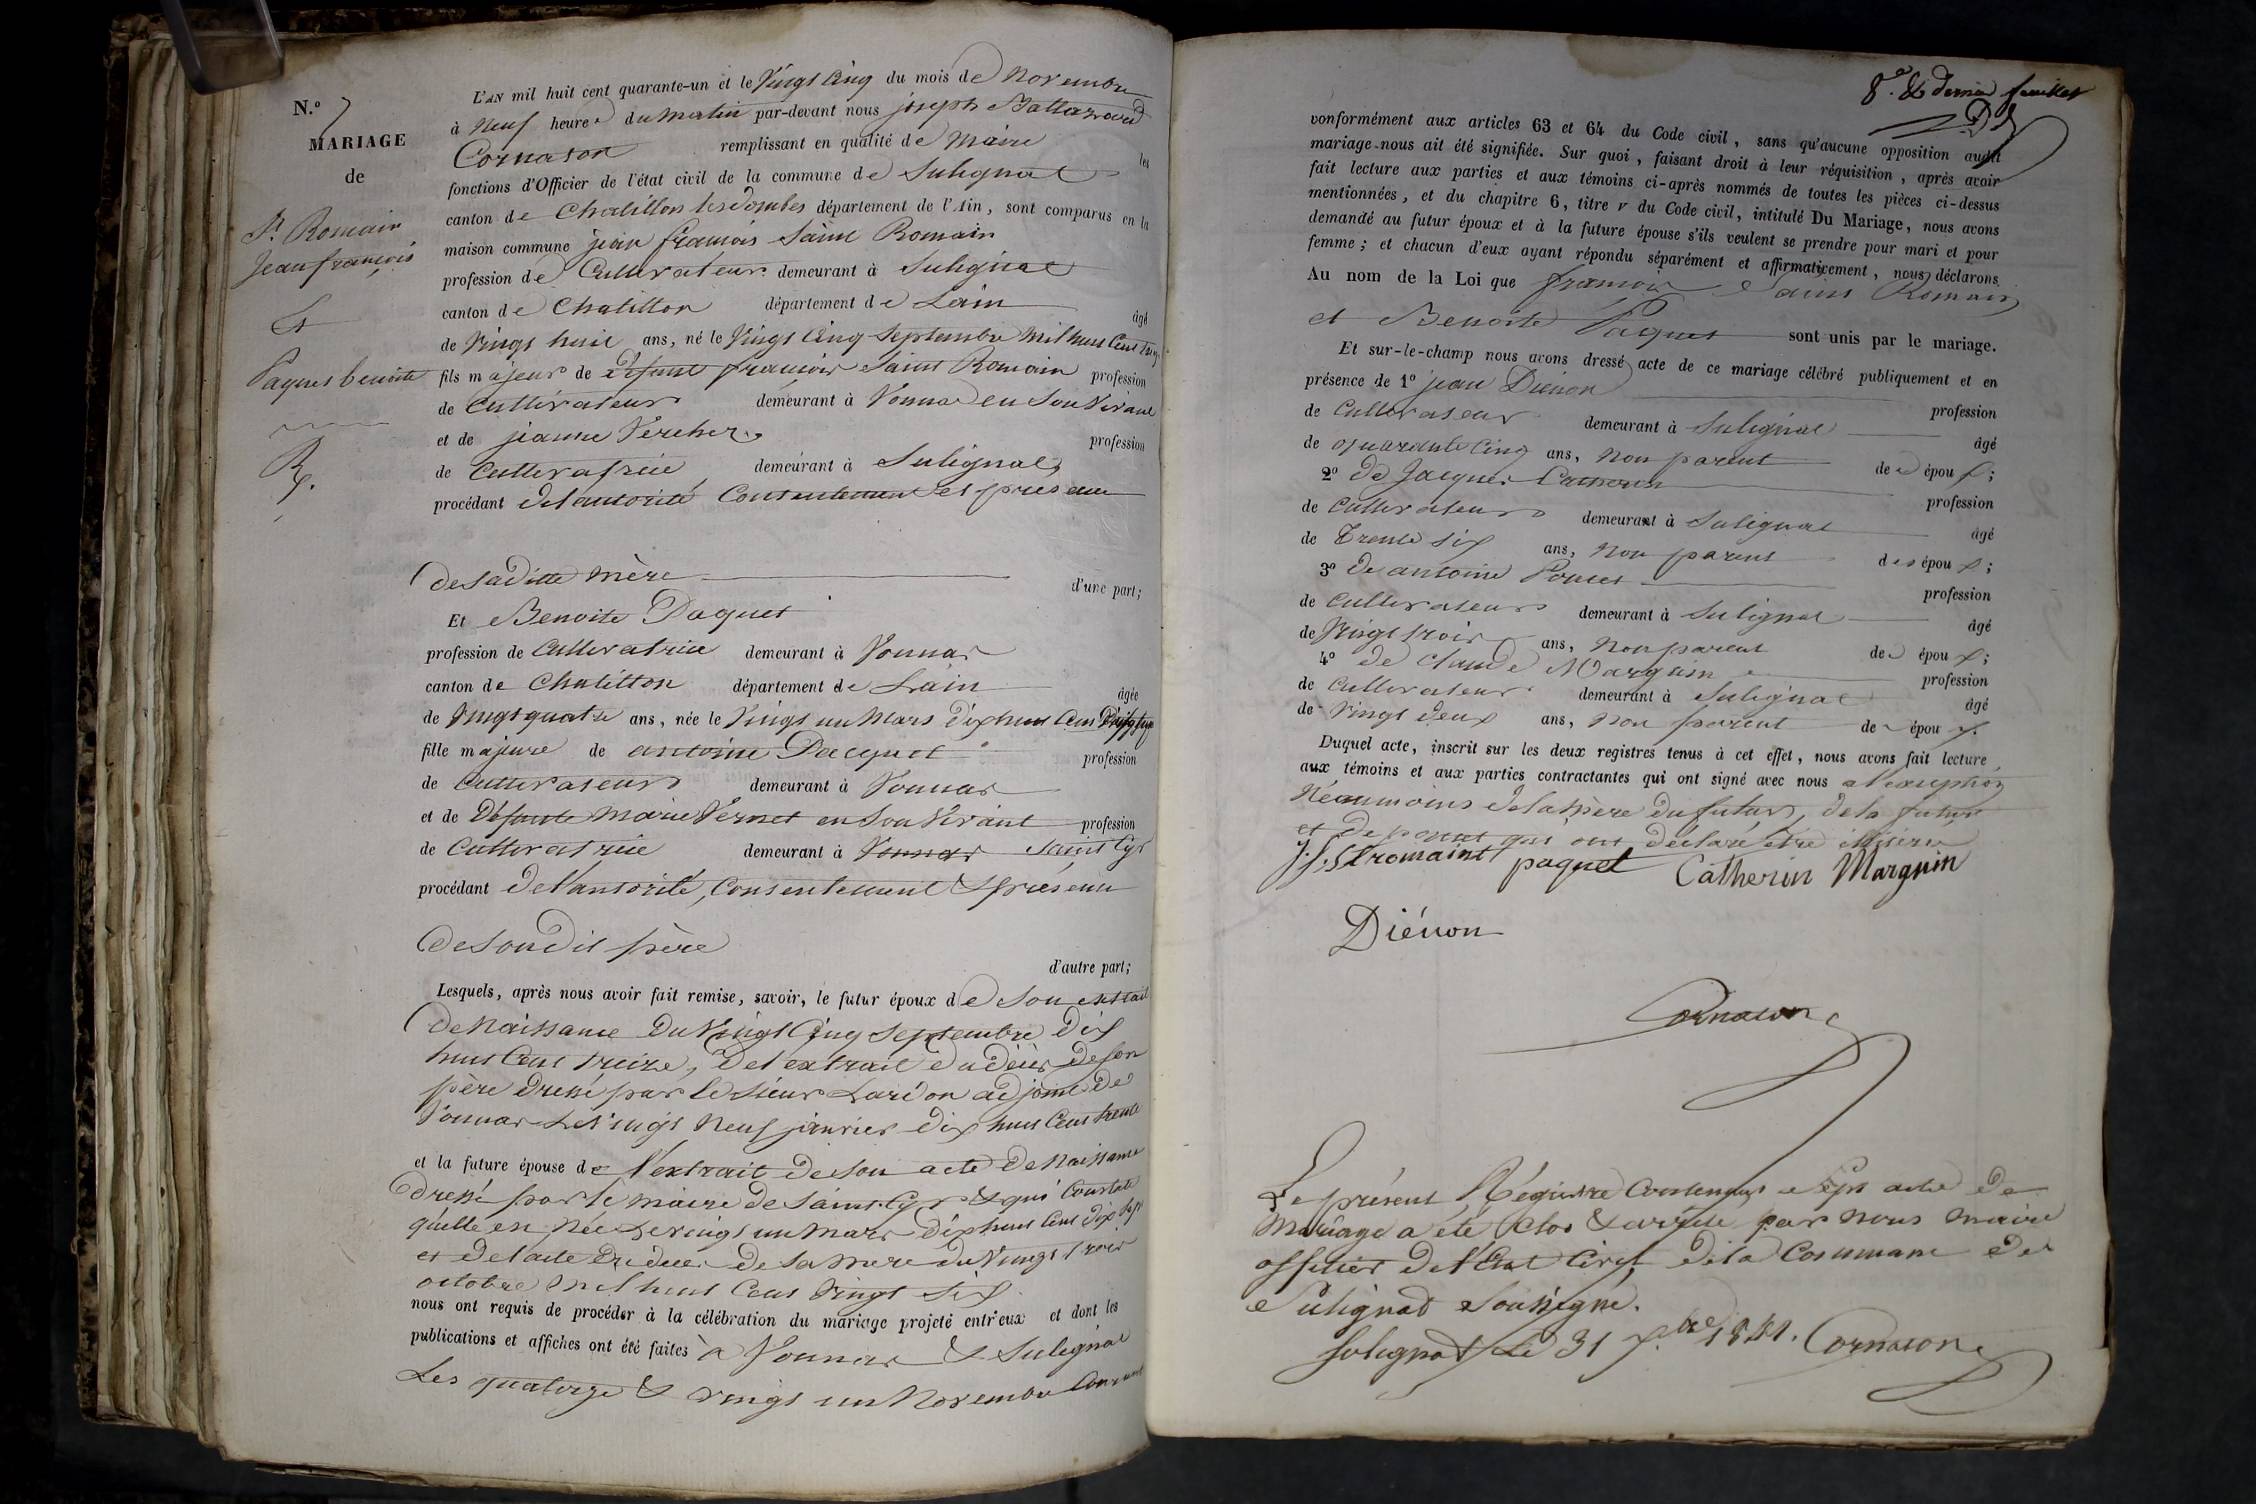 N.º 7
MARIAGE
de
St. Romain
Jean françois
Et
Paquet benoite
L'AN mil huit cent quarante-un et le Vingt Cinq du mois de Novembre
à Neuf heures du Matin par-devant nous joseph
Cornaton remplissant en qualité de Maire les
fonctions d'Officier de l'état civil de la commune de Sulignat
canton de Chatillon les Dombes département de l'Ain, sont comparus en la
maison commune jean françois Saint Romain
profession de Cultivateur demeurant à Sulignat
canton de Chatillon département de Lain âgé
de Vingt huit ans, né le Vingt Cinq Septembre Mil huit Cent treize
fils majeur de Défunt françois Saint Romain profession
de Cultivateur demeurant à Vonnas en Son Vivant
et de jeanne Vercher profession
de Cultivatrice demeurant à Sulignat
procédant del autorité Consentement et présence
de Saditte Mère d'une part;
Et Benoite Paquet
profession de Cultivatrice demeurant à Vonnas
canton de Chatillon département de Lain âgée
de Vingt quatre ans, née le Vingt un Mars Dix huit Cent Dix Sept
fille majeure de antoine Pacquet profession
de Cultivateur demeurant à Vonnas
et de Défunte Marie Vernet en Son Vivant profession
de Cultivatrice demeurant à Vonnas Saint Cyr
procédant del'autorité, Consentement & présence
de Son Dit père
d'autre part;
Lesquels, après nous avoir fait remise, savoir, le futur époux de Son extrait
de Naissance Du Vingt Cinq Septembre Dix
huit Cent treize, Del extrait du décès de Son
père dressé par le Sieur adjoint de
Vonnas Le Vingt Neuf janvier Dix huit Cent trente
et la future épouse de l'extrait de Son acte de Naissance
dressé par le maire de Saint Cyr & qui Constate
qu'elle est Née Le vingt un Mars Dix huit Cent dix Sept
et del acte de décès de Sa Mère du Vingt trois
octobre Mil huit Cent Vingt Six
nous ont requis de procéder à la célébration du mariage projeté entr'eux et dont les
publications et affiches ont été faites à Vonnas & Sulignat
Les quatorze & vingt un Novembre Courant
8e. & dernier feuillet
conformément aux articles 63 et 64 du Code civil, sans qu'aucune opposition audit
mariage nous ait été signifiée. Sur quoi, faisant droit à leur réquisition, après avoir
fait lecture aux parties et aux témoins ci-après nommés de toutes les pièces ci-dessus
mentionnées, et du chapitre 6, titre V du Code civil, intitulé Du Mariage, nous avons
demandé au futur époux et à la future épouse s'ils veulent se prendre pour mari et pour
femme; et chacun d'eux ayant répondu séparément et affirmativement, nous déclarons
Au nom de la Loi que françois Saint Romain
et Benoite Paquet sont unis par le mariage.
Et sur-le-champ nous avons dressé acte de ce mariage célébré publiquement et en
présence de 1º jean Diénon profession
de Cultivateur demeurant à Sulignat âgé
de quarante Cinq ans, Non parent des époux;
2º De Jacques Catherin profession
de Cultivateur demeurant à Sulignat âgé
de Trente Six ans, Non parent des époux;
3º De antoine Poncet profession
de Cultivateur demeurant à Sulignat âgé
de Vingt trois ans, Non parent des époux;
4º de Claude Marguin profession
de Cultivateur demeurant à Sulignat âgé
de Vingt Deux ans, Non parent des époux.
Duquel acte, inscrit sur les deux registres tenus à cet effet, nous avons fait lecture
aux témoins et aux parties contractantes qui ont signé avec nous al'exception
Néanmoins dela Mère du futur, de la future
et de poncet qui ont déclaré être
J. f. St romaint paquet Catherin Marguin
Diénon
Cornaton
Le présent Régistre Contenant Sept acte de
Mariage a été Clos & arrêté par Nous Maire
officier del'Etat Civil de la Commune de
Sulignat Soussigné.
Sulignat Le 31 Xbre 1841. Cornaton